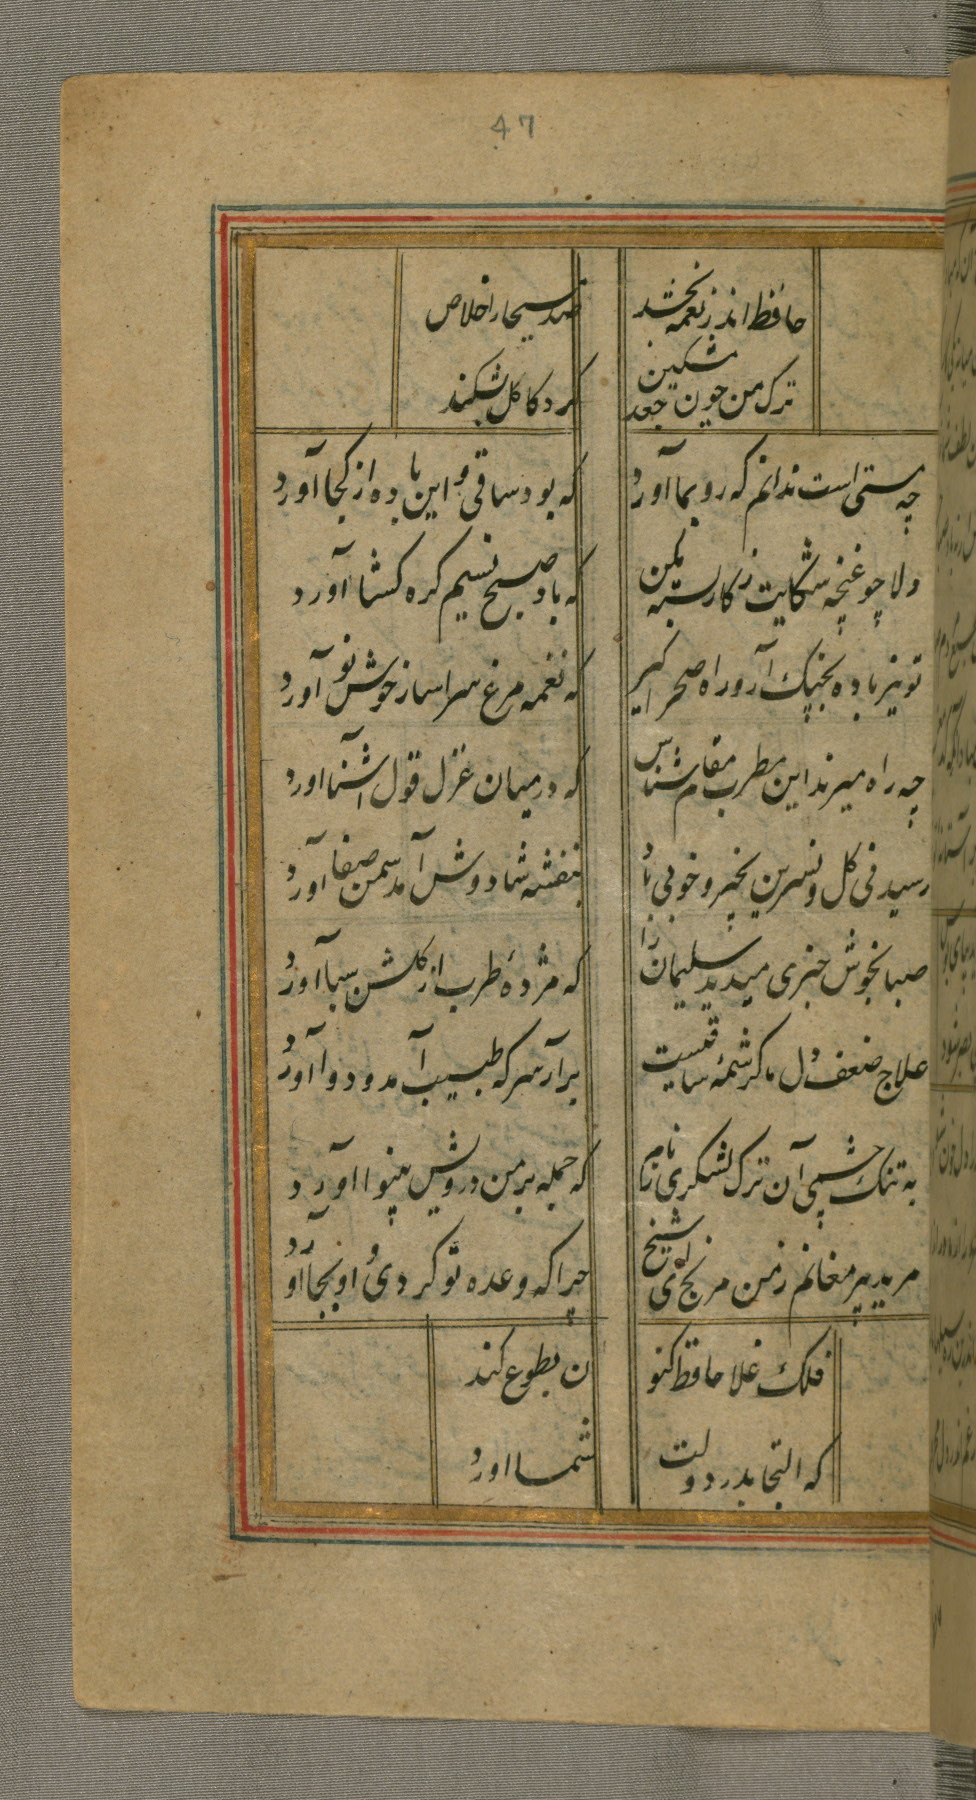 47
حافظ اندر نغمه بخشد صد مسیحا را خلاص
ترک من چون جعد مشکین کرد کاکل بشکند
چه مستی است ندانم که رو بما آورد
که بود ساقی و این باده از کجا آورد
دلا چو غنچه شکایت ز کار بسته مکن
که باد صبح نسیم کره کشا آورد
تو نیز باده بچنک آر و راه صحرا کیر
که نغمه مرغ سرا ساز خوش نوا آورد
چه راه میزند این مطرب مقام شناس
که درمیان غزل قول آشنا آورد
رسیدن کل و نسرین بخیر و خوبی باد
بنفشه شاد و وش آمد سمن صفا آورد
صبا بخوش خبری هدهد سلیمان را
که مژدهٔ طرب از کلشن سبا آورد
علاج ضعف دل ما کرشمهٔ ساقیست
برآر سر که طبیب آمد و دوا آورد
به تنک چشمی آن ترک لشکری نازم
که حمله بر من درویش بینوا آورد
مرید پیر مغانم ز من مرنج ای شیخ
چرا که وعده تو کردی و او بجا آورد
فلک غلا حافظ کنو
ن بطوع کند
که التجا بدر دولت
شما آورد